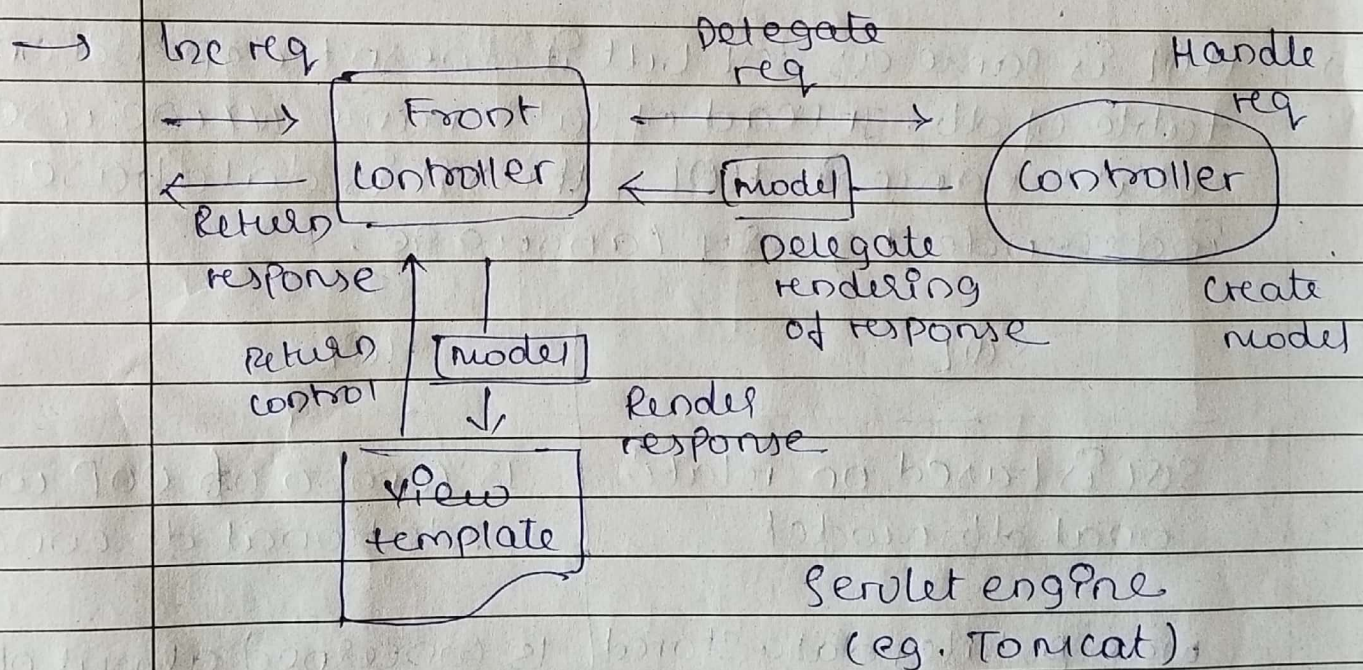 → Inc req
Delegate
req
Handle
req
Front
controller
model
controller
Return
response
Delegate
rendering
of response
create
model
Return
control
model
Render
response
view
template
Servlet engine
(eg. Tomcat)